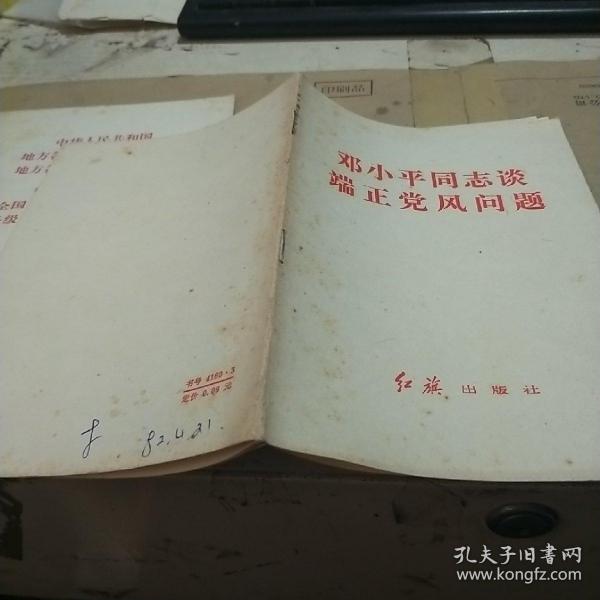 邓小平同志谈
端正党风问题
红旗 出版社
书号 4160·3
定价 0.09 元
82.4.21.
中华人民共和国
地方
地方
全国
级
印刷品
孔夫子旧书网
www.kongfz.com